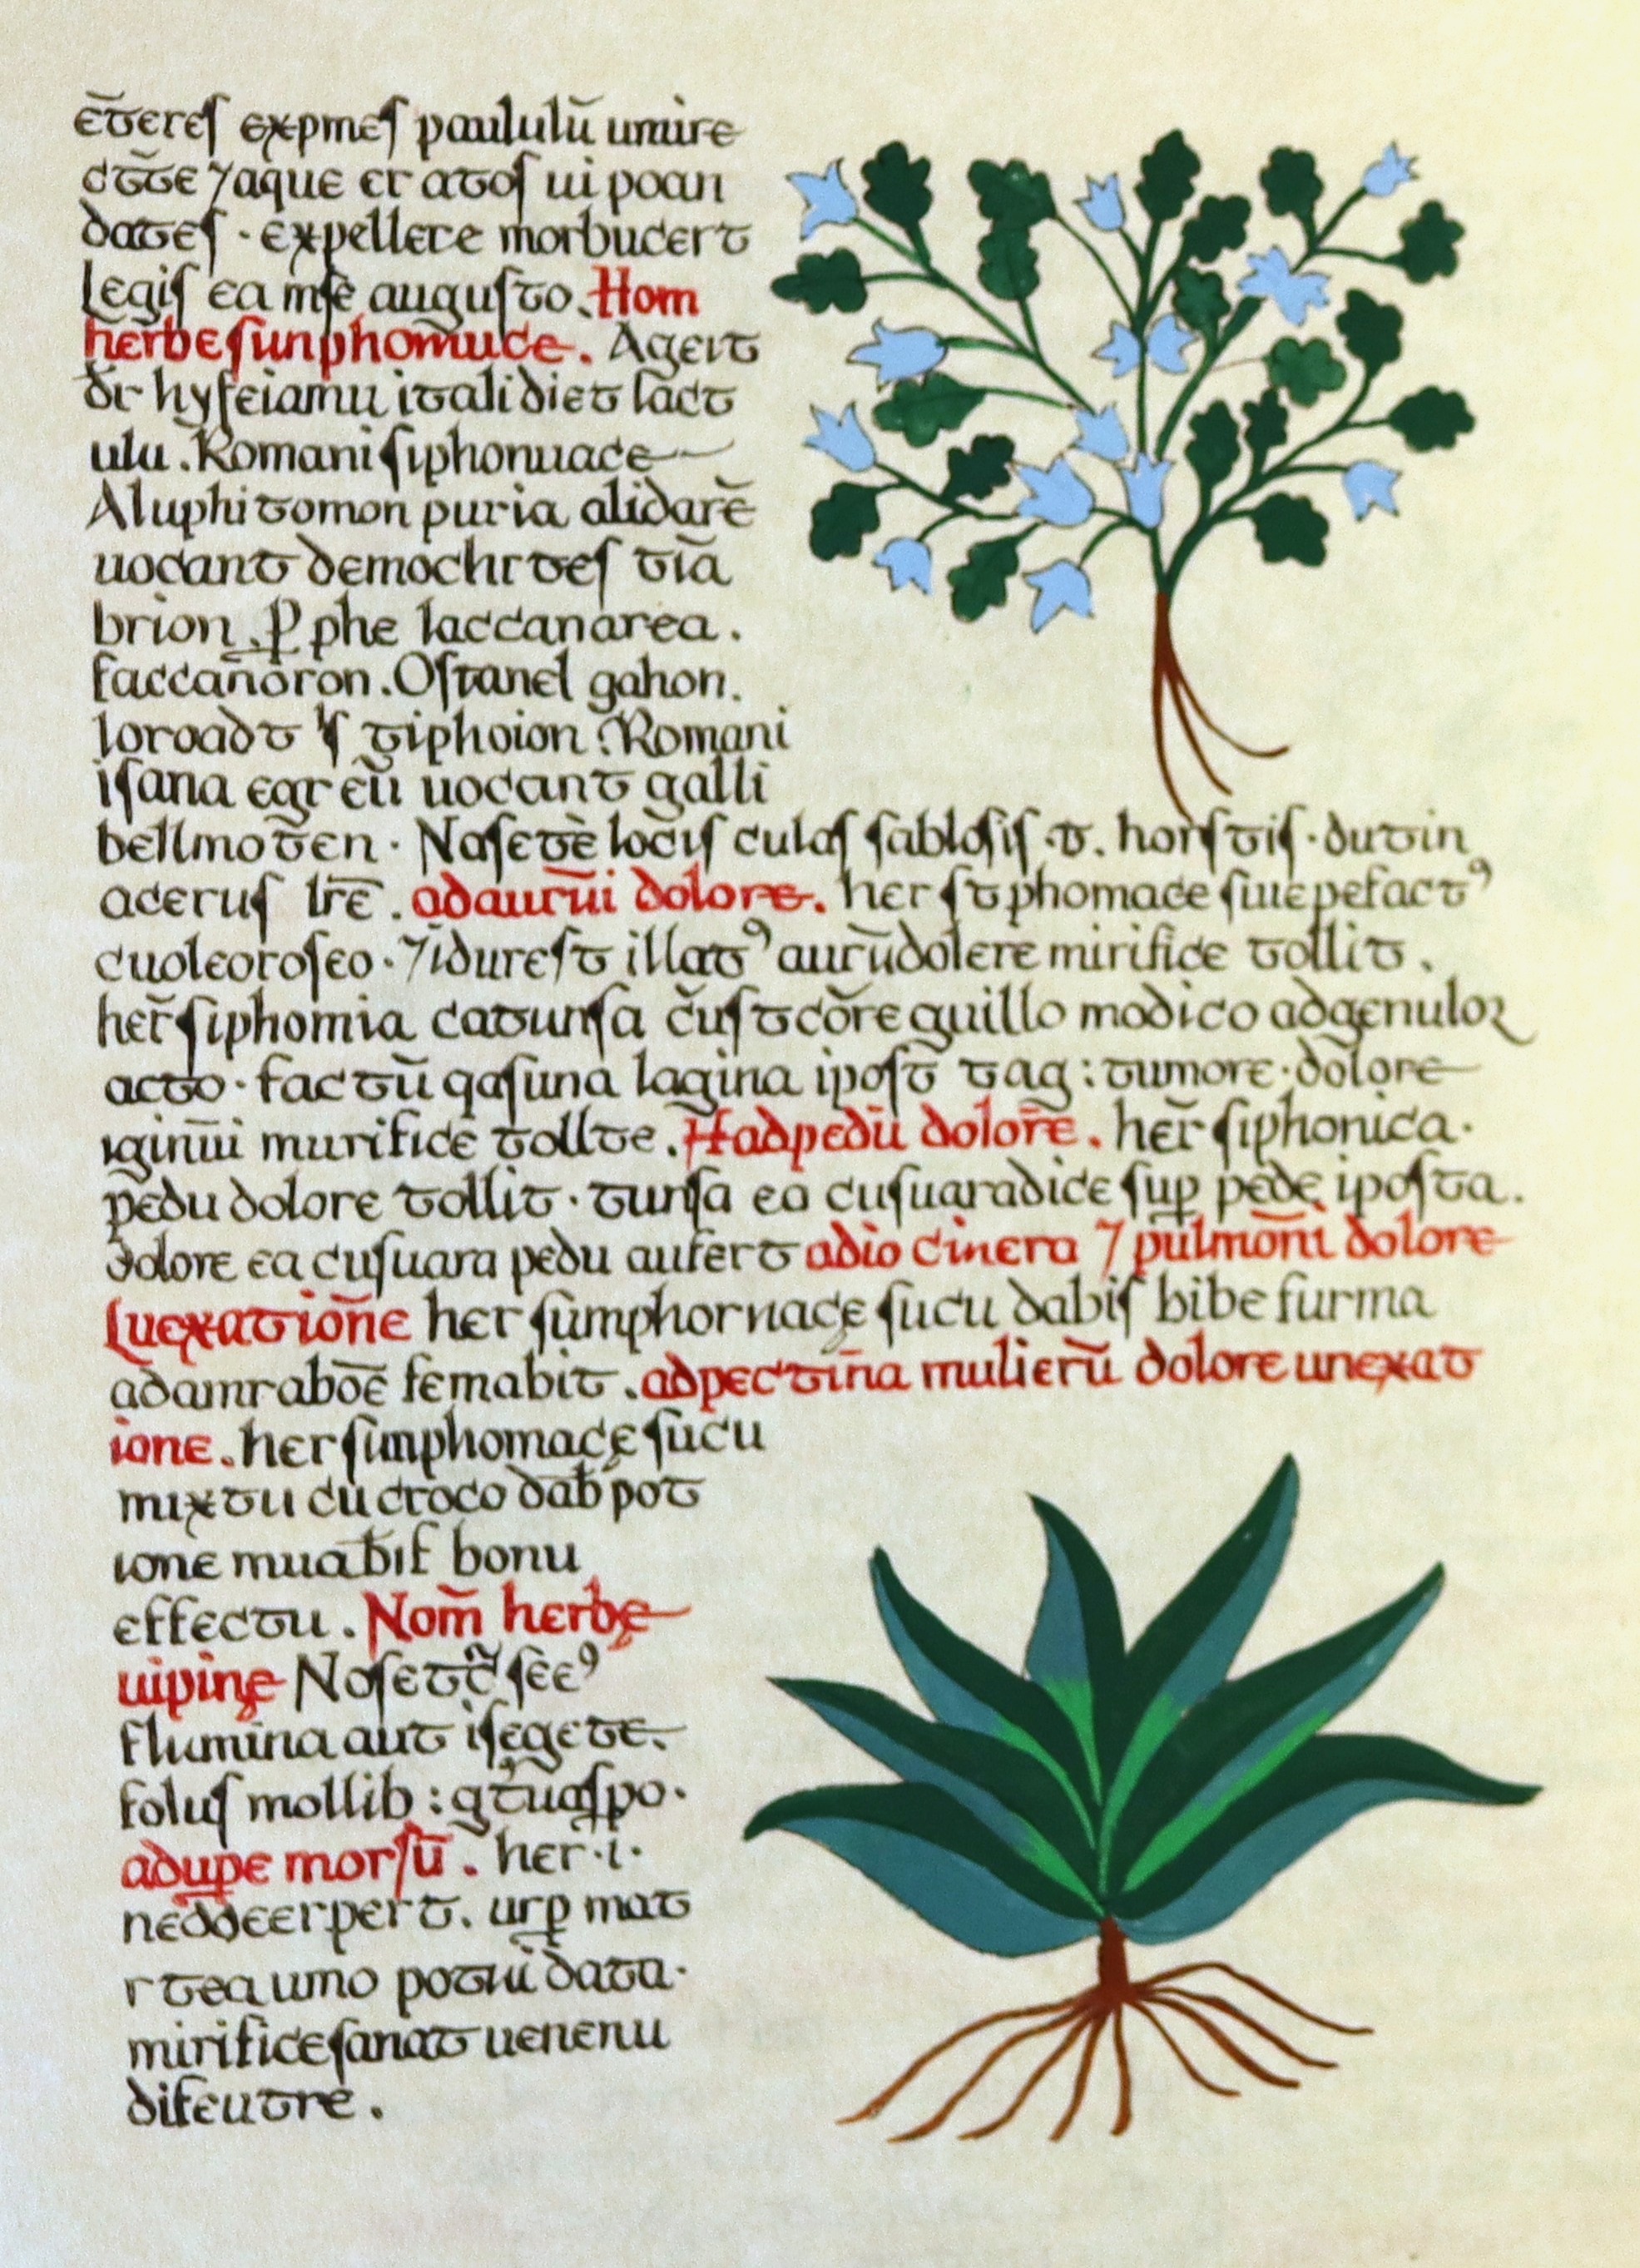 ēteres expmes paululū umire
cēte ⁊aque er atos ui poan
dates · expellere morbucert
Legis ea mse augusto. Hom
herbe sunphom̄uce. Ageit
dr hyseiamu itali diet lact
ulu. Romani siphonuace
Aluphitomon puria alidarē
uocant demochr tes tiā
brion. P phe laccanarea.
faccan̄oron. Ostanel gahon.
loroadt ſ tiphoion. Romani
isana egr eū uocant galli
bellmoten · Nasete locis culas sablosis · t. horstis · dutin
acerus lrē. adaurūi dolore. her stphomace siuepefactꝰ
cuoleoroseo · ⁊idurest illatꝰ aurūdolere mirifice tollit.
her̄ siphomia catunsa c̄ustcōre guillo modico adgenuloꝝ
acto · factū qasuna lagina ipost tag : tumore · dolore
iginūi murifice tollte. Hadpedū dolor̄e. her̄ siphonica ·
pedu dolore tollit · tunsa ea cusuaradice sup pede iposta.
dolore ea cusuara pedu aufert adio cinera ⁊ pulmōni dolore
Luexation̄e her sumphornace sucu dabis bibe furma
adamraboē femabit. adpectin̄a mulierū dolore unexat
ione. her sunphomace sucu
mixtu cu croco dab pot
ione muabif bonu
effectu. Nom̄ herbę
uipinę Nosetc̄ seeꝰ
flumina aut isegete.
folus mollib : gtuaspo ·
adupe morsū. her · i ·
neddeerpert. urp mat
r tea umo potui data ·
mirifice sanat uenenu
difeutre.